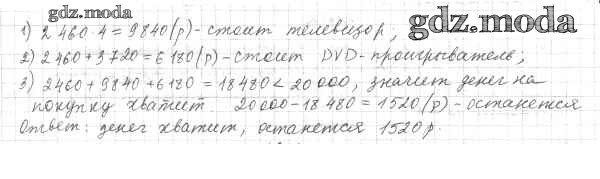 gdz.moda
gdz.moda
1) 2 460 · 4 = 9840 (р) - стоит телевизор;
2) 2 460 + 3720 = 6 180 (р) - стоит DVD - проигрыватель;
3) 2460 + 9840 + 6180 = 18 480 < 20 000, значит денег на
покупку хватит. 20 000 - 18 480 = 1520 (р) - останется
Ответ: денег хватит, останется 1520 р.